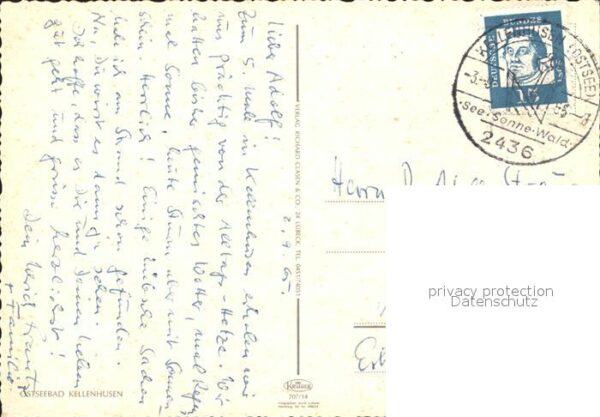 2.9.65.
Lieber Adolf!
Zum 5. Male in Kellenhusen erholen wir
uns prächtig von der Alltags-Hetze. Wir
hatten bisher gemischtes Wetter, mal Regen
mal Sonne, heute Sturm aber mit Sonnen-
schein. Herrlich! Einige hübsche Sachen
habe ich am Strand schon gefunden
Na, Du wirst es dann ja sehen.
Ich hoffe, dass es Dir und Deinen Lieben
gut geht und grüsse herzlichst!
Dein
u. Familie
OSTSEEBAD KELLENHUSEN
VERLAG RICHARD CLASEN & CO. 24 LÜBECK, TEL.
707/14
DEUTSCHE BUNDESPOST
15
KELLENHUSEN (OSTSEE)
See·Sonne·Wald
2436
Herrn
privacy protection
Datenschutz